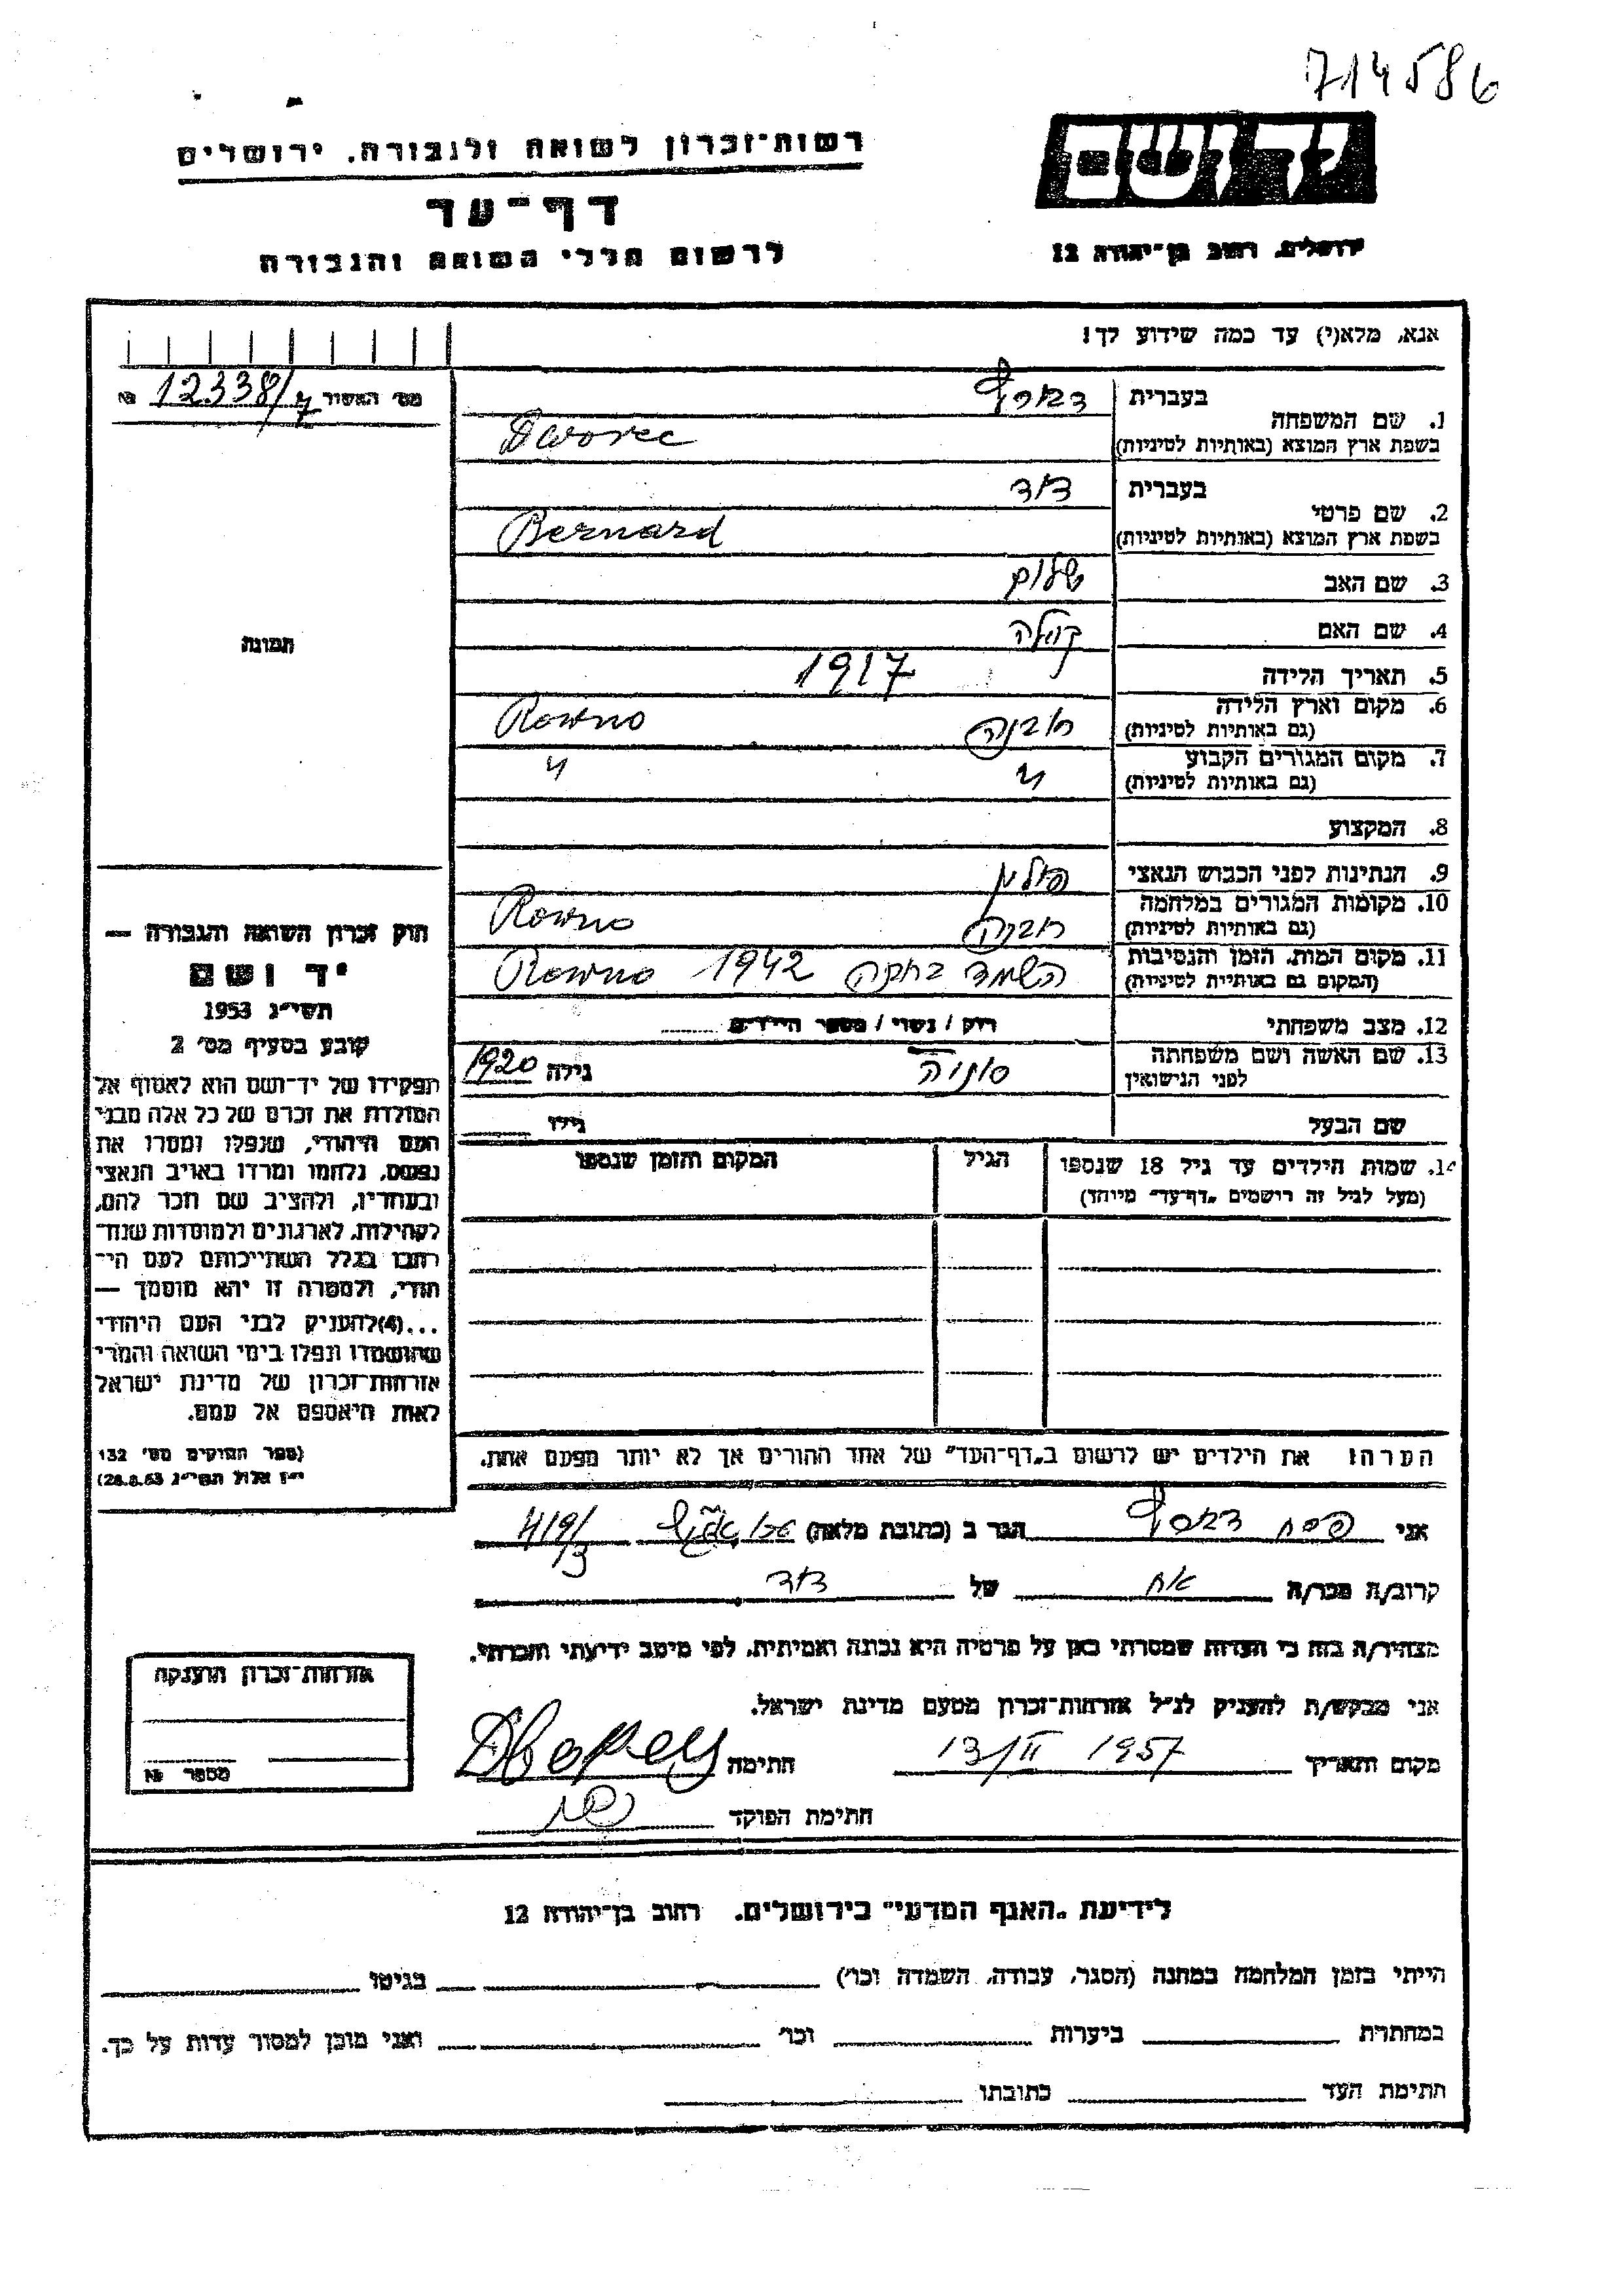 714586
רשות-זכרון לשואה ולגבורה. ירושלים
יד ושם
דף-עד
ירושלים, רחוב בן-יהודה 12
לרשום חללי השואה והגבורה
אנא, מלא(י) עד כמה שידוע לך!
מס' האשור № 12338/7
1. שם המשפחה בעברית
בשפת ארץ המוצא (באותיות לטיניות) Dworec
2. שם פרטי בעברית דוד
בשפת ארץ המוצא (באותיות לטיניות) Bernard
3. שם האב שלום
4. שם האם
תמונה
5. תאריך הלידה 1917
6. מקום וארץ הלידה (גם באותיות לטיניות) רובנה Rowno
7. מקום המגורים הקבוע (גם באותיות לטיניות) " "
8. המקצוע
9. הנתינות לפני הכבוש הנאצי פולין
10. מקומות המגורים במלחמה (גם באותיות לטיניות) רובנה Rowno
11. מקום המות, הזמן והנסיבות (המקום גם באותיות לטיניות) השמד ברובנה 1942 Rowno
12. מצב משפחתי רווק / נשוי / מספר הילדים
13. שם האשה ושם משפחתה לפני הנישואין סוניה גילה 1920
שם הבעל גילו
14. שמות הילדים עד גיל 18 שנספו הגיל המקום והזמן שנספו
(מעל לגיל זה רושמים "דף-עד" מיוחד)
חוק זכרון השואה והגבורה —
יד ושם
תשי"ג 1953
קובע בסעיף מס' 2
תפקידו של יד-ושם הוא לאסוף אל
המולדת את זכרם של כל אלה מבני
העם היהודי, שנפלו ומסרו את
נפשם, נלחמו ומרדו באויב הנאצי
ובעוזריו, ולהציב שם וזכר להם,
לקהילות, לארגונים ולמוסדות שנח-
רבו בגלל השתייכותם לעם הי-
הודי, ולמטרה זו יהא מוסמך —
...(4)להעניק לבני העם היהודי
שהושמדו ונפלו בימי השואה והמרי
אזרחות-זכרון של מדינת ישראל
לאות היאספם אל עמם.
(ספר החוקים מס' 132
י"ז אלול תשי"ג 28.8.53)
הערה: את הילדים יש לרשום ב"דף-העד" של אחד ההורים אך לא יותר מפעם אחת.
אני פסח הגר ב (כתובת מלאה) 419/3
קרוב/ה מכר/ה אח של דוד
מצהיר/ה בזה כי העדות שמסרתי כאן על פרטיה היא נכונה ואמיתית, לפי מיטב ידיעתי והכרתי.
אני מבקש/ת להעניק לנ"ל אזרחות-זכרון מטעם מדינת ישראל.
מקום ותאריך 13/II 1957 חתימה
חתימת הפוקד
אזרחות-זכרון הוענקה
מספר №
לידיעת "האגף המדעי" בירושלים. רחוב בן-יהודה 12
הייתי בזמן המלחמה במחנה (הסגר, עבודה, השמדה וכו') בגיטו
במחתרת ביערות וכו' ואני מוכן למסור עדות על כך.
חתימת העד כתובתו